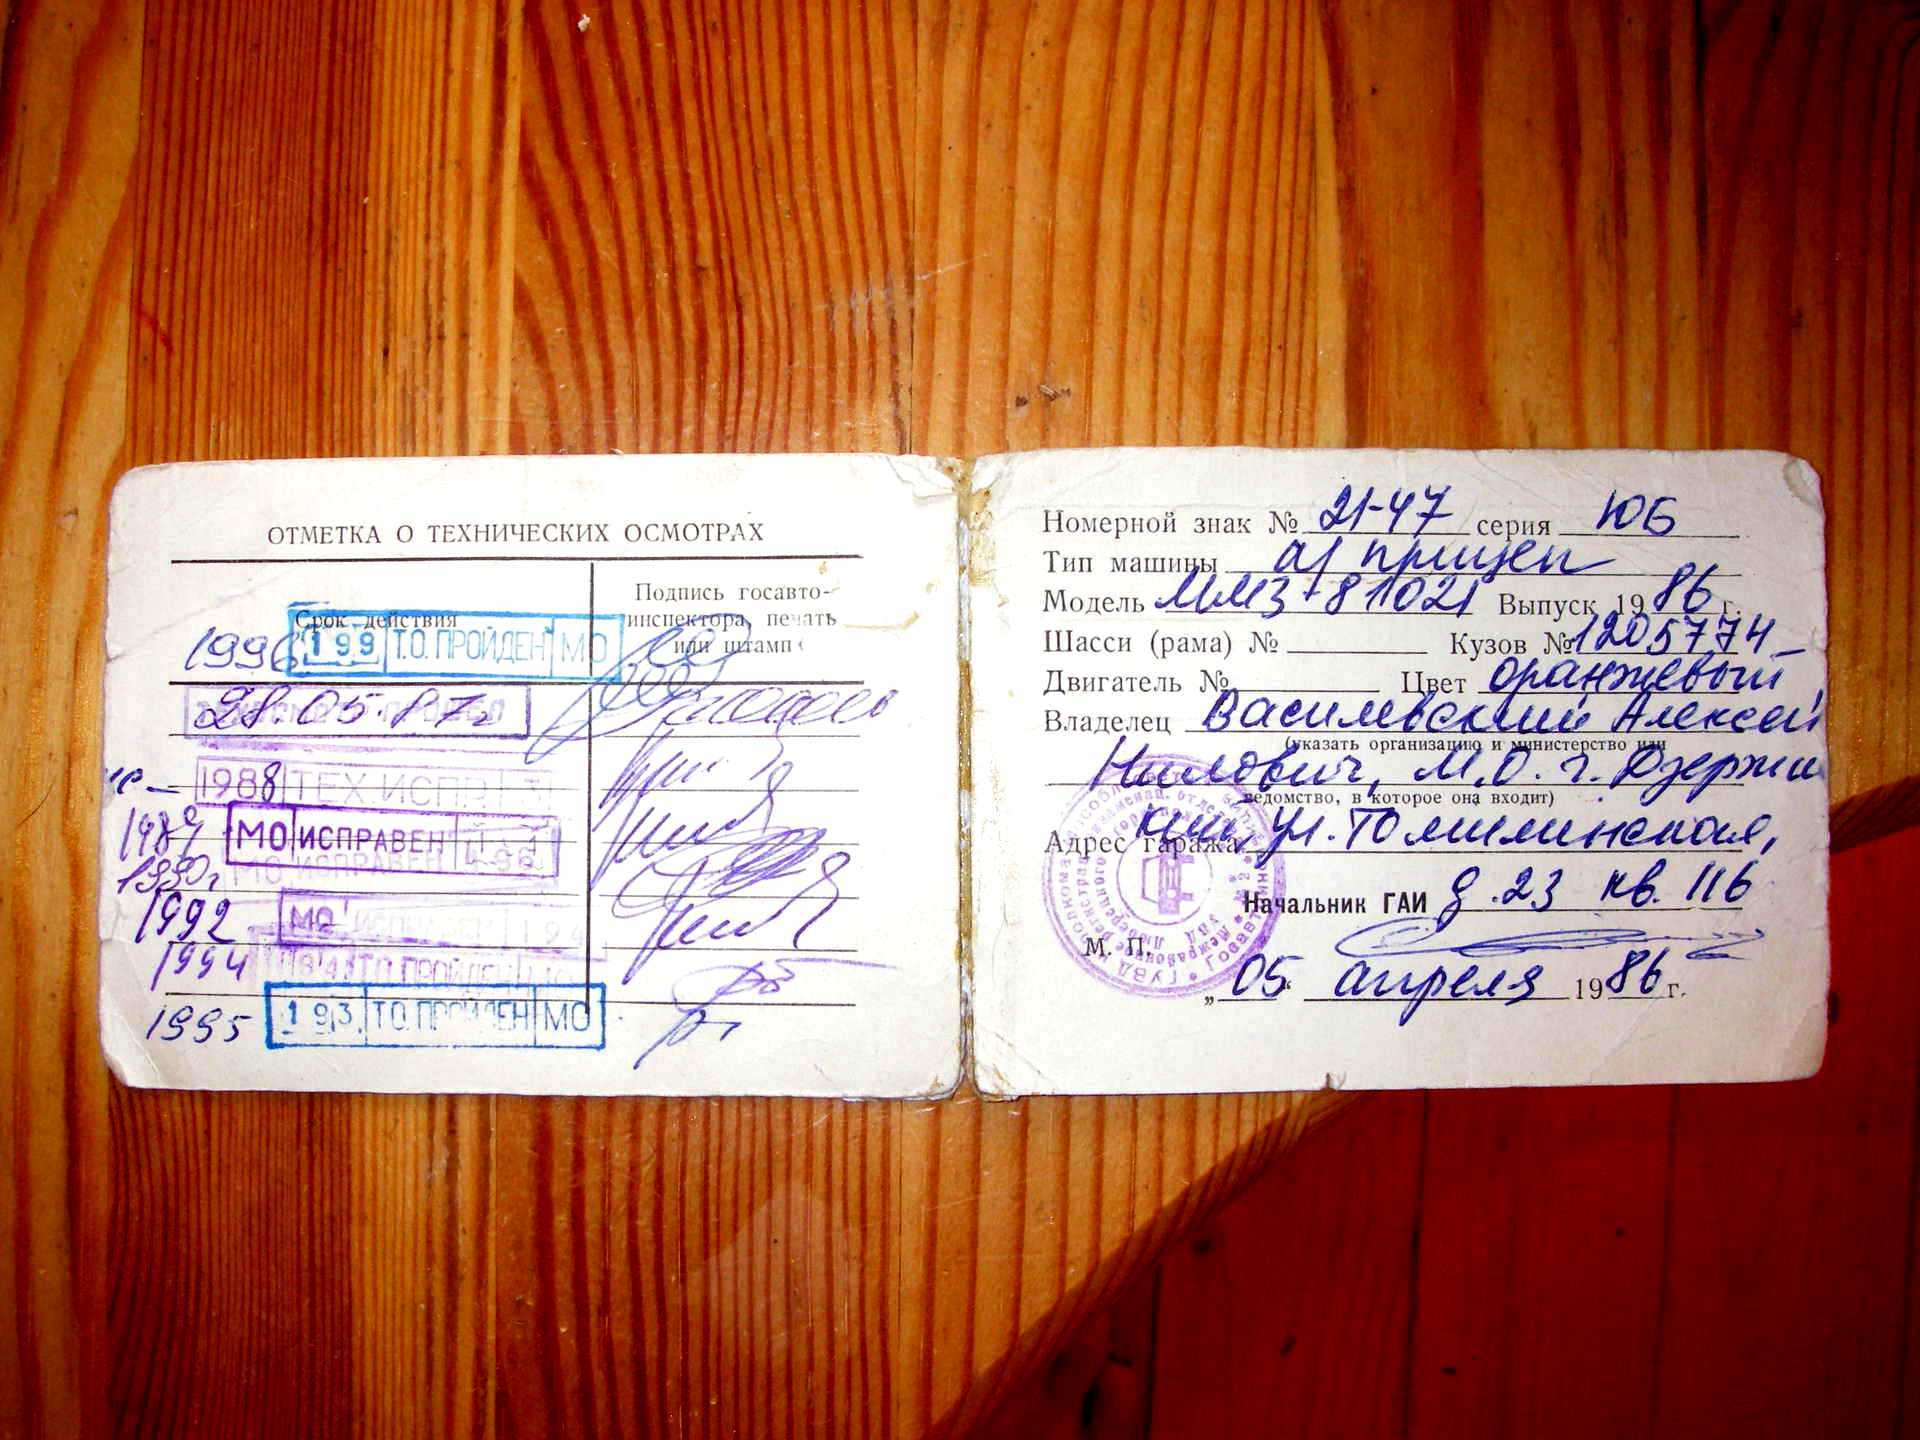 ОТМЕТКА О ТЕХНИЧЕСКИХ ОСМОТРАХ
Срок действия
Подпись госавто-
инспектора, печать
или штамп
1996 199 Т.О. ПРОЙДЕН МО
28.05.87г
1988 ТЕХ.ИСПР.
1989 МО ИСПРАВЕН
МО ИСПРАВЕН
1990г
1992 МО ИСПРАВЕН
1994 Т.О. ПРОЙДЕН
1995 193 Т.О. ПРОЙДЕН МО
Номерной знак № 21-47 серия ЮБ
Тип машины а/прицеп
Модель ММЗ-81021 Выпуск 1986 г.
Шасси (рама) № Кузов № 1205774
Двигатель № Цвет оранжевый
Владелец Василевский Алексей
(указать организацию и министерство или
Нилович, М.О. г. Дзержин
ведомство, в которое она входит)
Адрес гаража ул. Томилинская,
Начальник ГАИ д. 23 кв. 116
М. П.
„05“ апреля 1986 г.